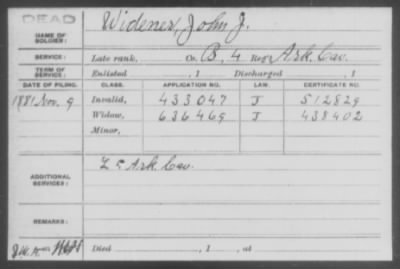 DEAD
NAME OF SOLDIER: Widener, John J.
SERVICE: Late rank, Co. B, 4 Reg't Ark. Cav.
TERM OF SERVICE: Enlisted , 1 Discharged , 1
DATE OF FILING. CLASS. APPLICATION NO. LAW. CERTIFICATE NO.
1881 Nov. 9 Invalid, 433047 J 512829
Widow, 636469 J 438402
Minor,
ADDITIONAL SERVICES: L 5 Ark Cav.
REMARKS:
Died , 1 , at